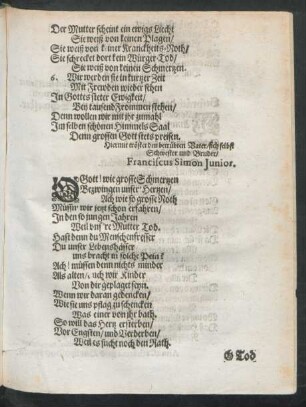 Der Mutter scheint ein ewigs Liecht
Sie weiß von keinen Plagen/
Sie weiß von keiner Kranckheits-Noth/
Sie schrecket dort kein Würger Tod/
Sie weiß von keinen Schmertzen.
6. Wir werden sie in kurtzer Zeit
Mit Frewden wieder sehen
In Gottes steter Ewigkeit/
Bey tausend Frommen stehen/
Denn wollen wir mit ihr zumahl
In selben schönen Himmels Saal
Denn grossen Gott stets preisen.
Hiermit tröstet den betrübten Vater/sich selbst
Schwester und Bruder/
Franciscus Simon Junior.
O Gott! wie grosse Schmertzen
Bezwingen unser' Hertzen/
Ach wie so grosse Noth
Müssn' wir jetzt schon erfahren/
In den so jungen Jahren
Weil uns're Mutter Tod.
Hast denn du Menschenfresser
Du unser Lebenshasser
uns bracht in solche Pein?
Ach! müssen denn nichts minder
Als alten/ ach wir Kinder
Von dir geplaget seyn.
Wenn wir daran gedencken/
Wie sie uns pflag zu schencken
Was einer von ihr bath.
So will das Hertz ersterben/
Vor Engsten/ und Verderben/
Weil es sucht noch den Rath.
O Tod